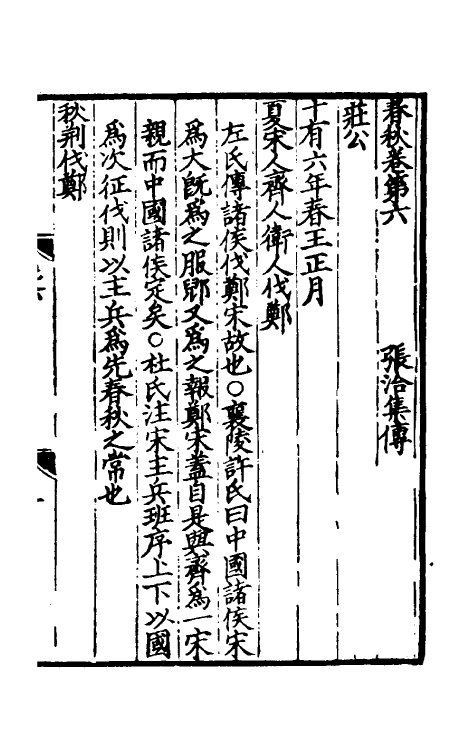 春秋卷第六　　　張洽集傳
莊公
十有六年春王正月
夏宋人齊人衛人伐鄭
左氏傳諸侯伐鄭宋故也○襄陵許氏曰中國諸侯宋
爲大旣爲之服郳又爲之報鄭宋蓋自是與齊爲一宋
親而中國諸侯定矣○杜氏注宋主兵班序上下以國
爲次征伐則以主兵爲先春秋之常也
秋荆伐鄭